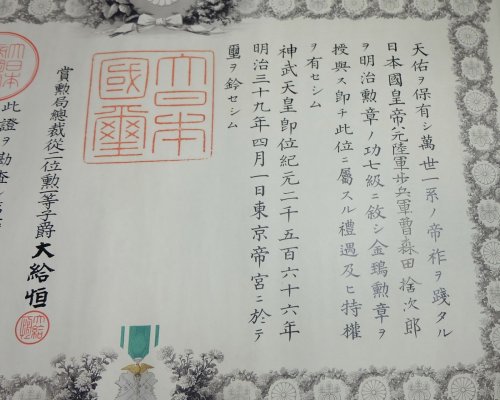 天佑ヲ保有シ萬世一系ノ帝祚ヲ踐タル
日本國皇帝ハ元陸軍歩兵軍曹森田捨次郎
ヲ明治勲章ノ功七級ニ敘シ金鵄勲章ヲ
授與ス即チ此位ニ屬スル禮遇及ヒ特權
ヲ有セシム
神武天皇即位紀元二千五百六十六年
明治三十九年四月一日東京帝宮ニ於テ
璽ヲ鈐セシム
大日本
國璽
賞勲局總裁從二位勲一等子爵大給恒
此證ヲ勘査シ